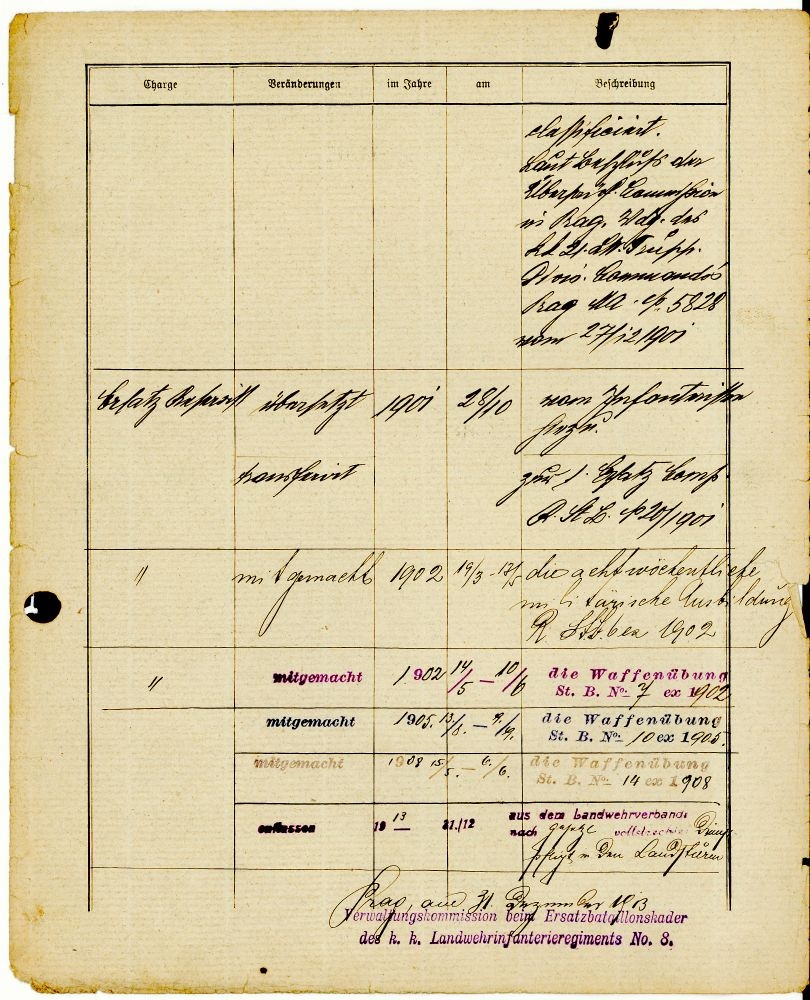 Charge Veränderungen im Jahre am Beschreibung
classificiert.
Laut Beschluß der
Überprüf. Commission
in Prag, Vdg. des
21. Trupp.
Divis. Commandos
Prag MA. № 5828
vom 27/12 1901
Ersatz Reservist übersetzt 1901 28/10 vom Infanteristen
transferirt zur 1. Ersatz Comp.
R. St. B. № 20/1901
" mitgemacht 1902 19/3 - 13/5 die achtwöchentliche
militärische Ausbildung
R. St. B. 6 ex 1902
" mitgemacht 1902 14/5 — 10/6 die Waffenübung
St. B. No. 7 ex 1902
mitgemacht 1905. 13/8. — 9./9. die Waffenübung
St. B. No. 10 ex 1905.
mitgemacht 1908 15/5. — 6./6. die Waffenübung
St. B. No. 14 ex 1908
entlassen 1913 31./12 aus dem Landwehrverband
nach vollstreckter Dienst
pflicht in den Landsturm
Prag, am 31. Dezember 1913
Verwaltungskommission beim Ersatzbataillonskader
des k. k. Landwehrinfanterieregiments No. 8.